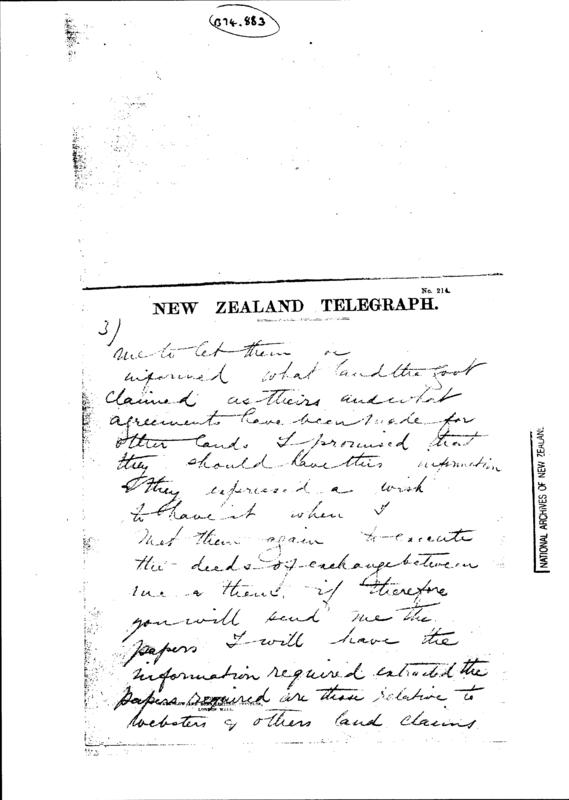 B74.883
No. 214.
NEW ZEALAND TELEGRAPH.
3)
me to let them be
informed what land the Govt
claimed as theirs and what
agreements have been made for
other lands I promised that
they should have this information
& they expressed a wish
to have it when I
met them again to execute
the deeds of exchange between
me & them. if therefore
you will send me the
papers I will have the
information required extracted the
papers required are those relative to
Websters & others land claims
NATIONAL ARCHIVES OF NEW ZEALAN